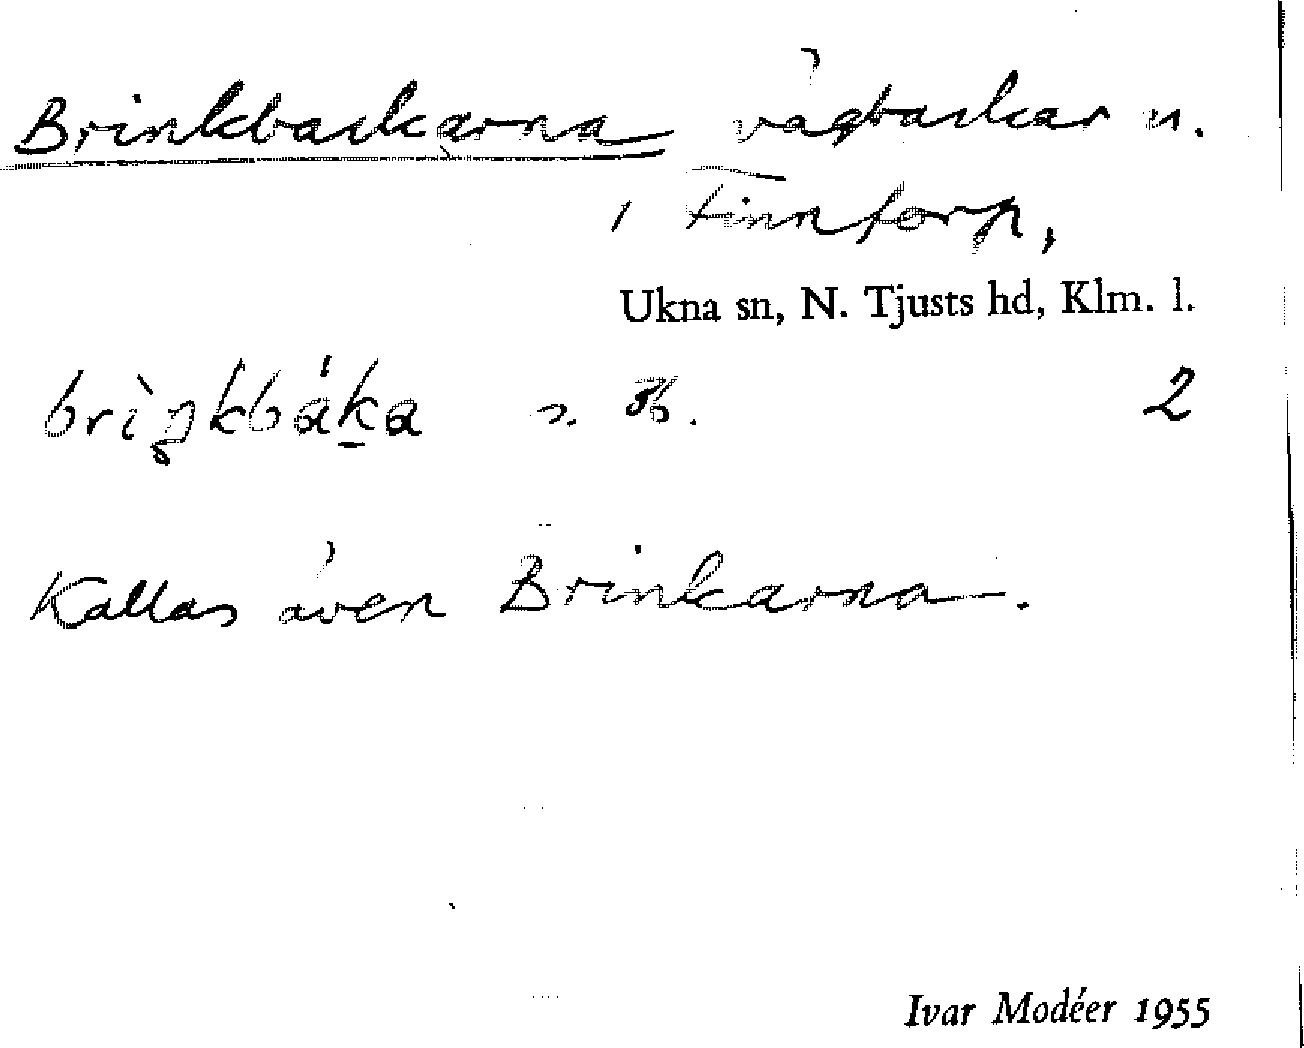 Brinkbackarna vägbackar n.
i Finntorp,
Ukna sn, N. Tjusts hd, Klm. l.
brìŋkbáka 2
Kallas även Brinkarna.
Ivar Modéer 1955